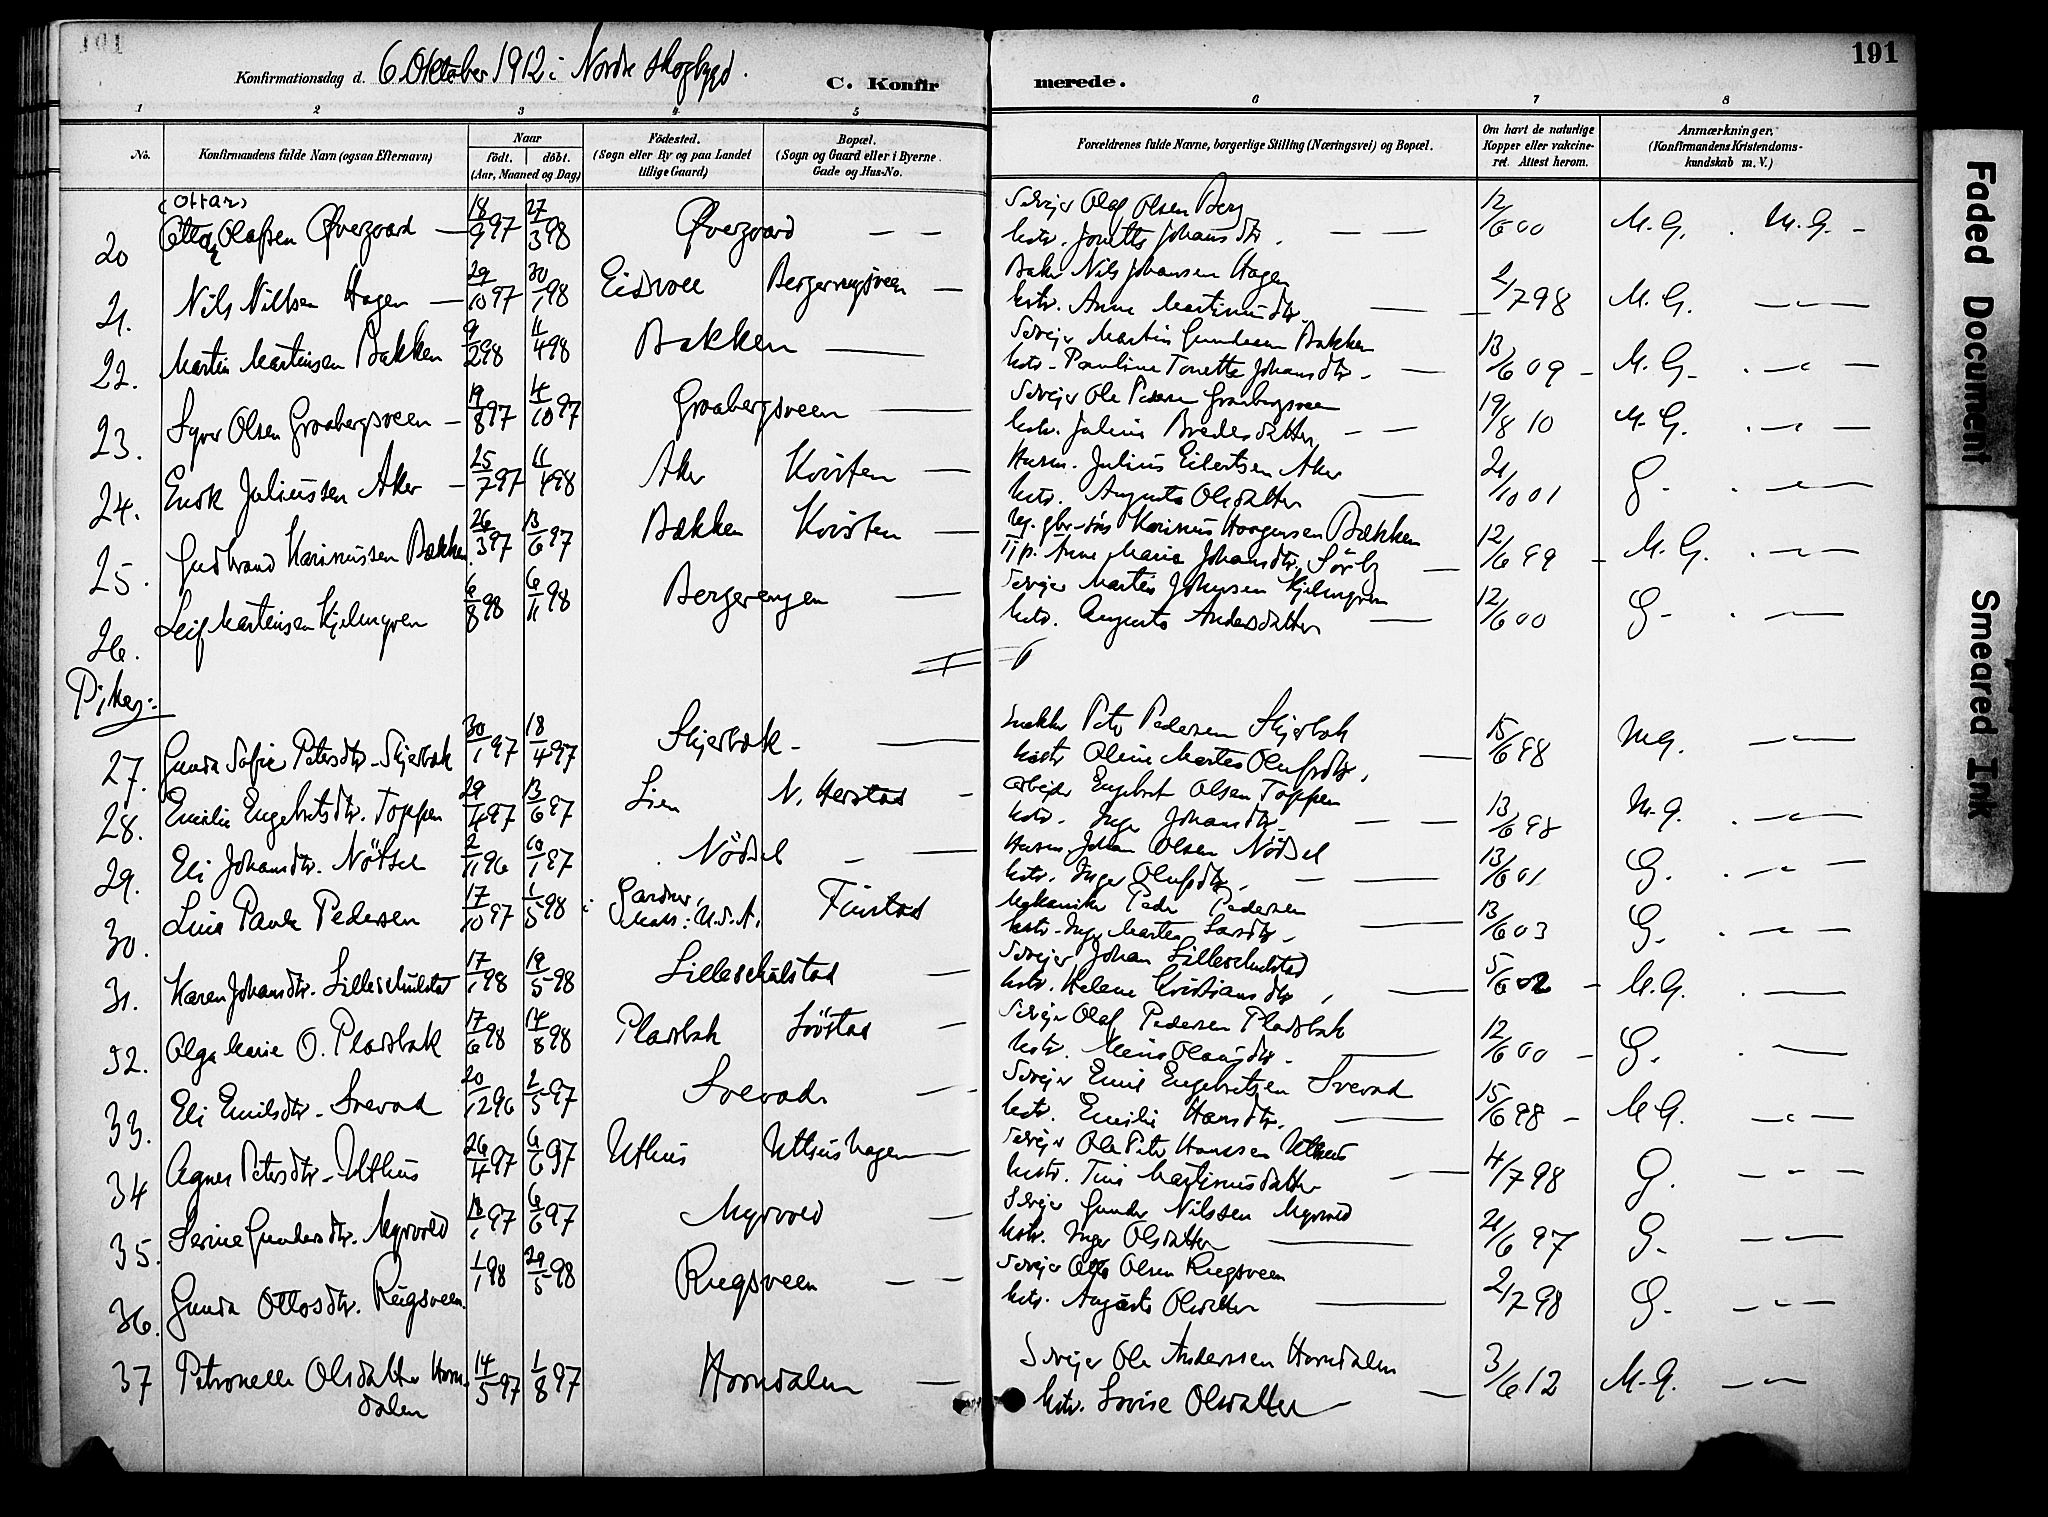 191
Konfirmationsdag d. 6 Oktober 1912 i Nordre Skogbygd.
C. Konfir
merede.
191
1 2 3 4 5 6 7 8
No.
Konfirmandens fulde Navn (ogsaa Efternavn)
Naar
födt. döbt.
(Aar, Maaned og Dag)
Födested.
(Sogn eller By og paa Landet
tillige Gaard)
Bopæl.
(Sogn og Gaard eller i Byerne
Gade og Hus-No.
Forældrenes fulde Navne, borgerlige Stilling (Næringsvei) og Bopæl.
Om havt de naturlige
Kopper eller vakcine-
ret. Attest herom.
Anmærkninger.
(Konfirmandens Kristendoms-
kundskab m. V.)
(Ottar)
20 Olafsen Øvergaard — 18/9 97 27/3 98 Øvergaard — — Selvejer Olaf Olsen Berg 12/6 00 M.G. . M.G. -
hstr. Jonette Johansdtr. — —
21. Nils Nilsen Hagen — 29/10 97 30/1 98 Eidsvoll Bergerengsveen — Nils Johansen Hagen 2/7 98 M.G. — " —
hstr. Anne Martinusdtr. —
22. Martin Martinsen Bakken 9/2 98 11/4 98 Bakken — Selvejer Martin Gundersen Bakken 13/6 09 M.G. . — " —
hstr. Pauline Tonette Johansdtr. —
23. Syver Olsen Graabergsveen — 19/8 97 4/10 97 Graabergsveen — Selvejer Ole Pedersen Graabergsveen 19/8 10 M.G. . — " —
hstr. Juline Bredesdatter — —
24. Enok Juliussen Aker — 25/7 97 11/4 98 Aker Kvisten — Husm. Julius Eilertsen Aker 21/10 01 G. . — " —
hstr. Augusta Olsdatter —
25. Gudbrand Karinussen Bækken 26/3 97 13/6 97 Bækken Kvisten — Karinus Haagensen Bækken 12/6 99 M.G. . — " —
Anne Marie Johansdtr. Sörby —
26. Leif Martinsen Kjelmyren 6/8 98 6/11 98 Bergerengen — Selvejer Martin Johnsen Kjelmyren 12/6 00 G. . — " —
hstr. Augusta Andersdatter —
Piker:
27. Gunda Sofie Petersdtr. Skjerbæk 30/1 97 18/4 97 Skjerbæk — Snekker Peter Pedersen Skjerbæk 15/6 98 M.G. — " —
hstr Oline Martea Olufsdtr. —
28. Emilie Engebretsdtr. Toppen 29/4 97 13/6 97 Lien N. Herstad — arbejder Engebret Olsen Toppen 13/6 98 M.G. . — " —
hstr. Inger Johansdtr. — —
29. Eli Johansdtr. Nötsel 2/11 96 10/1 97 Nödsel — — Husm. Johan Olsen Nödsel 13/6 01 G. . — " —
hstr. Inger Olufsdtr. — —
30. Lina Paula Pedersen 17/10 97 1/5 98 i Gardner, Finstad Mekaniker Peder Pedersen 13/6 03 G. . — " —
Mass: U.S.A. hstr. Inger Martea Larsdtr. —
31. Karen Johansdtr. Lilleschulstad 17/1 98 19/5 98 Lilleschulstad — Selvejer Johan Lilleschulstad 5/6 02 M.G. . —
hstr. Helene Kristiansdtr. —
32. Olga Marie O. Pladsbak 17/6 98 14/8 98 Pladsbak Lövstad — Selvejer Olaf Pedersen Pladsbak 12/6 00 G. . —
hstr. —
33. Eli Emilsdtr. Svevad 20/12 96 2/5 97 Svevad. — Selvejer Emil Engebretsen Svevad 15/6 98 M.G. — " —
hstr. Emilie Hansdtr. —
34 Agnes Petersdtr. Uthus 26/4 97 6/6 97 Uthus Uthushagen — Selvejer Ole Peter Hanssen Uthus 4/7 98 G. — " —
hstr. Tine Martinusdatter — —
35. Serine Gundersdtr. Myrvold 13/1 97 6/6 97 Myrvold — Selvejer Gunder Nilssen Myrvold 21/6 97 G. — " —
hstr. Inger Olsdatter —
36. Gunda Ottosdtr. Rugsveen. 1/1 98 29/5 98 Rugsveen — — Selvejer Otto Olsen Rugsveen 2/7 98 G. — " —
hstr. Augusta Olsdatter —
37 Petronelle Olsdatter Horn- 14/5 97 1/8 97 Horndalen — Selvejer Ole Anderssen Horndalen 3/6 12 M.G. — " —
dalen hstr. Lovise Olsdatter —
Faded Document
Smeared Ink